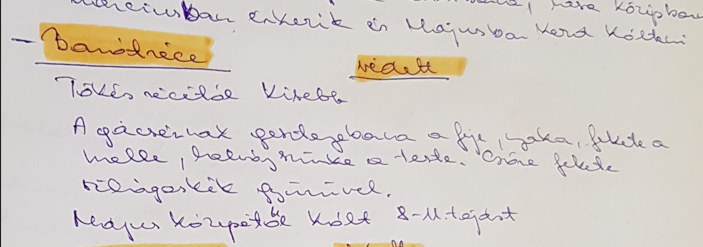 Márciusban érkezik és Májusban kezd költeni
- Barátréce védett
Tőkés récétől kisebb
A gácsérnak gesztenyebarna a feje, nyaka, fekete a
melle, halványszürke a teste. Csőre fekete
világoskék gyűrűvel.
Május közepétől költ 8-11 tojást